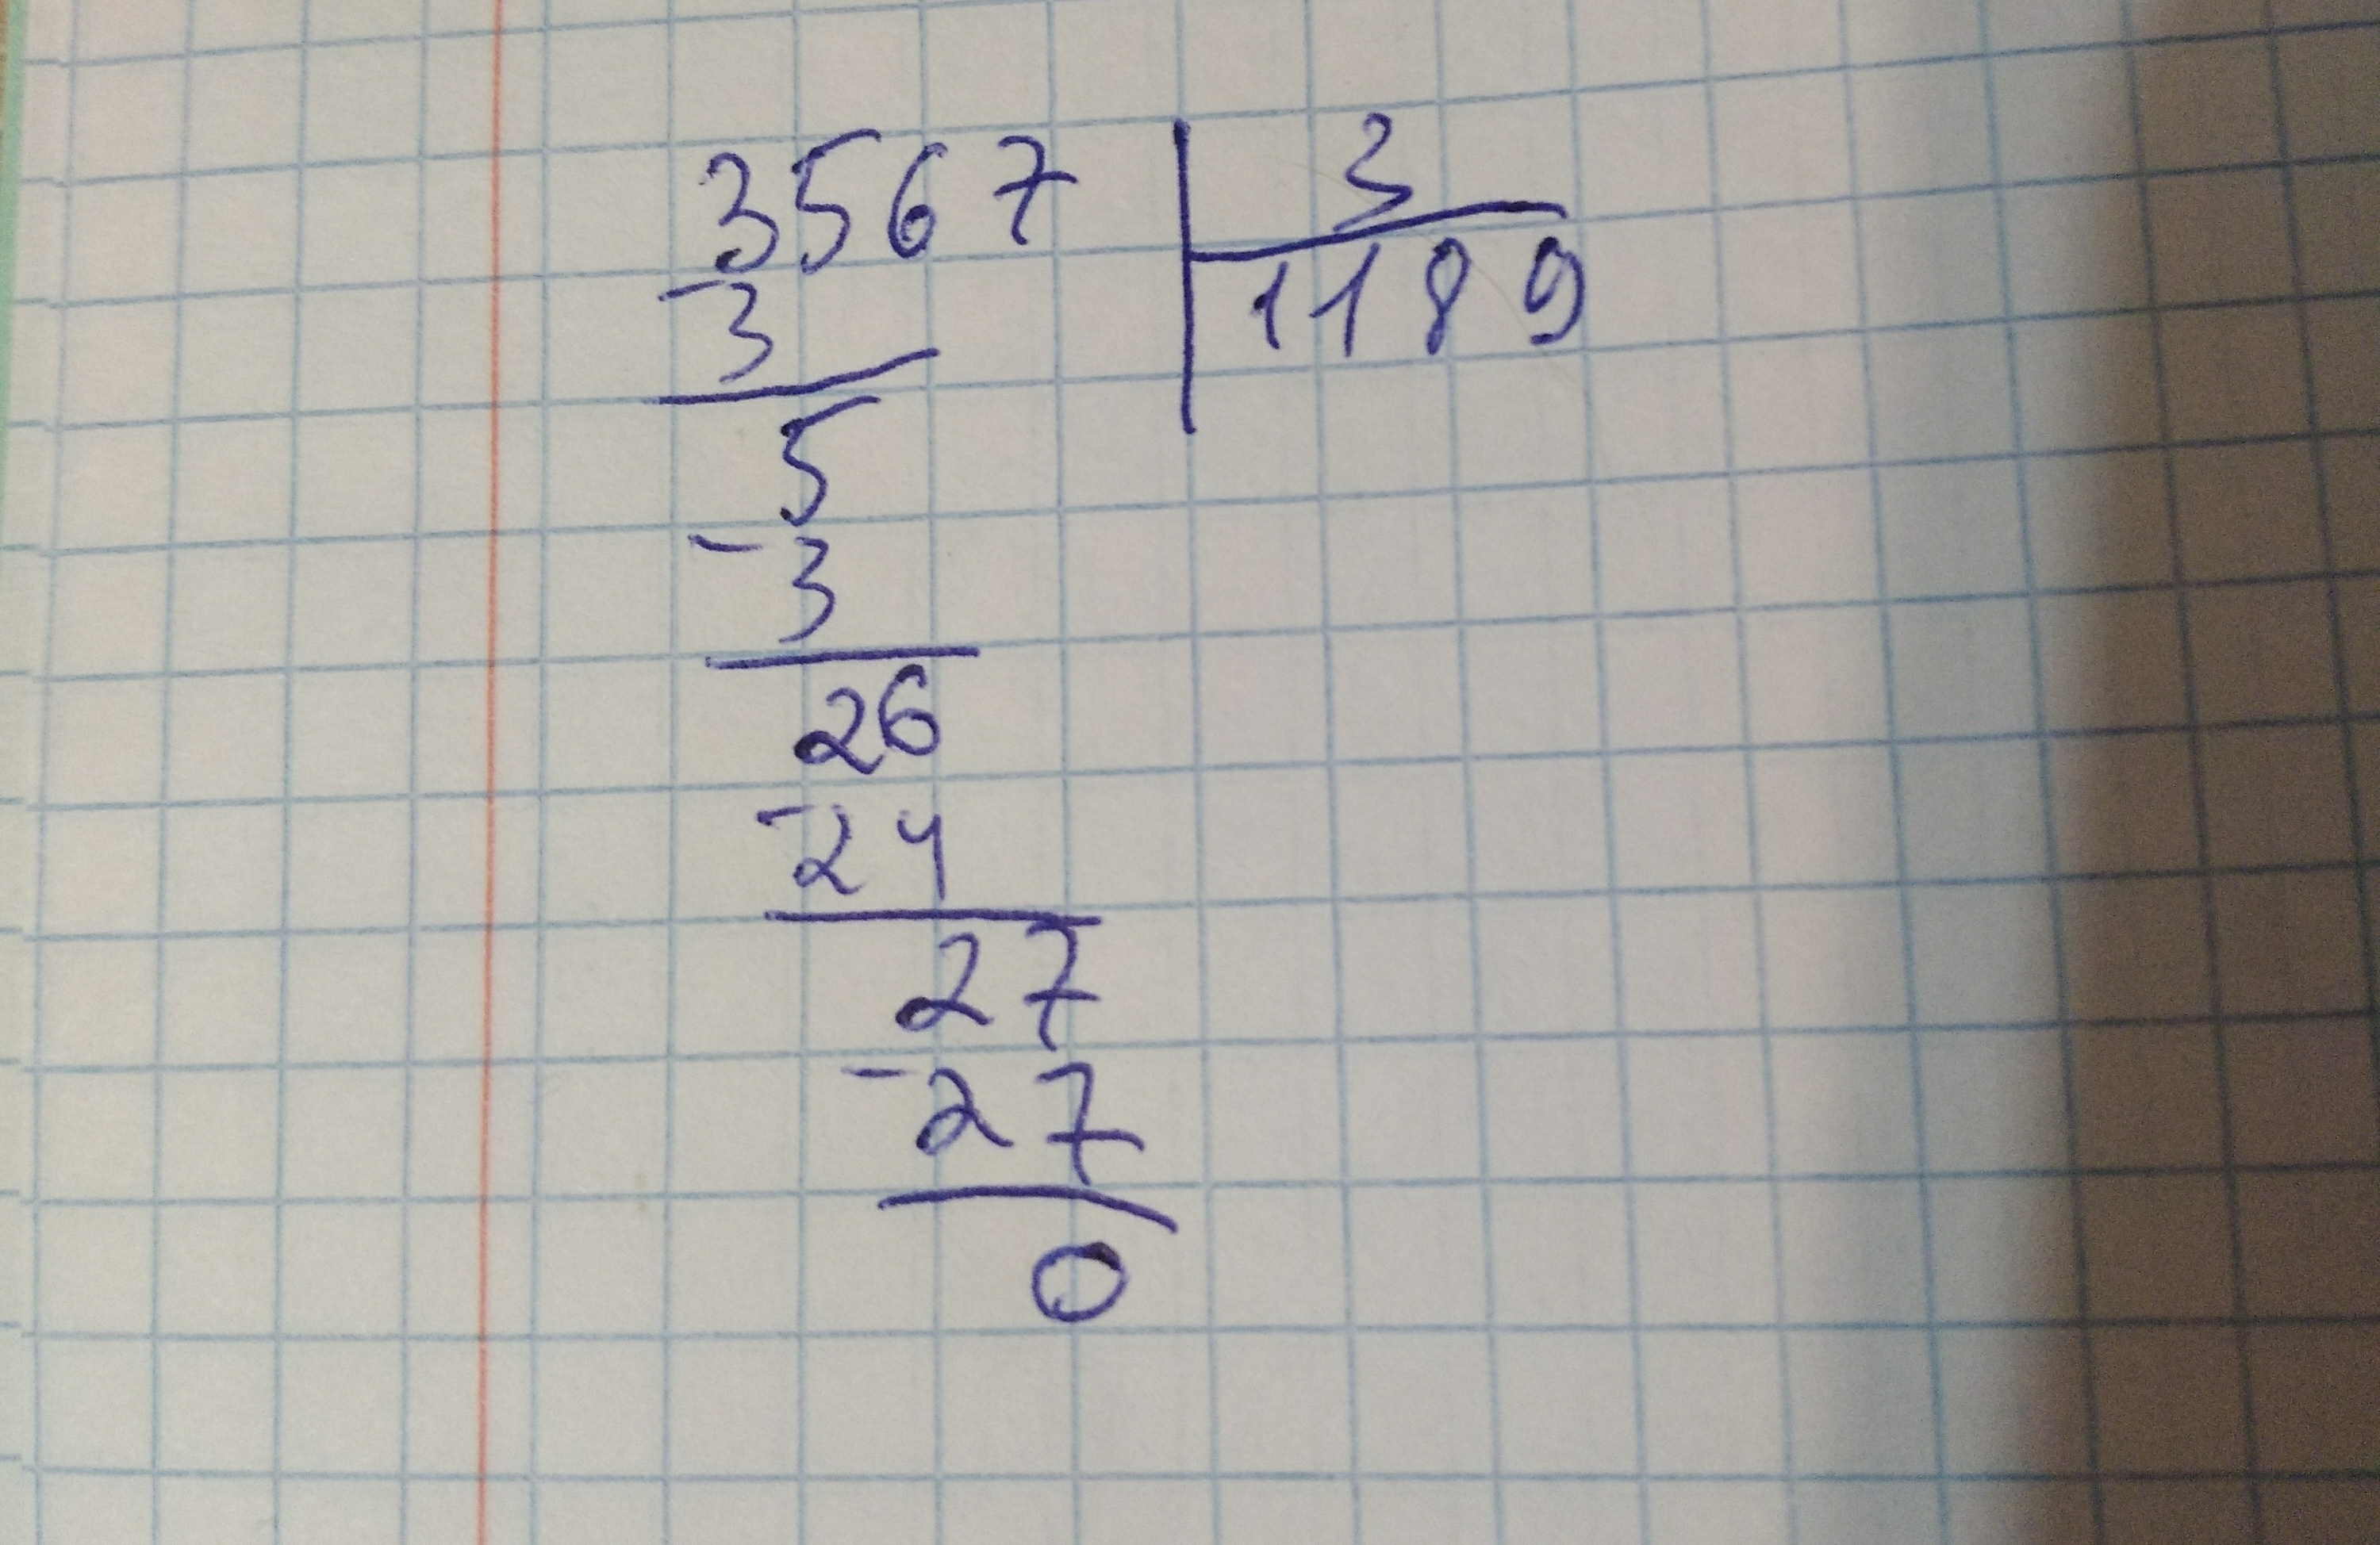 3567 3
1189
-3
5
-3
26
-24
27
-27
0